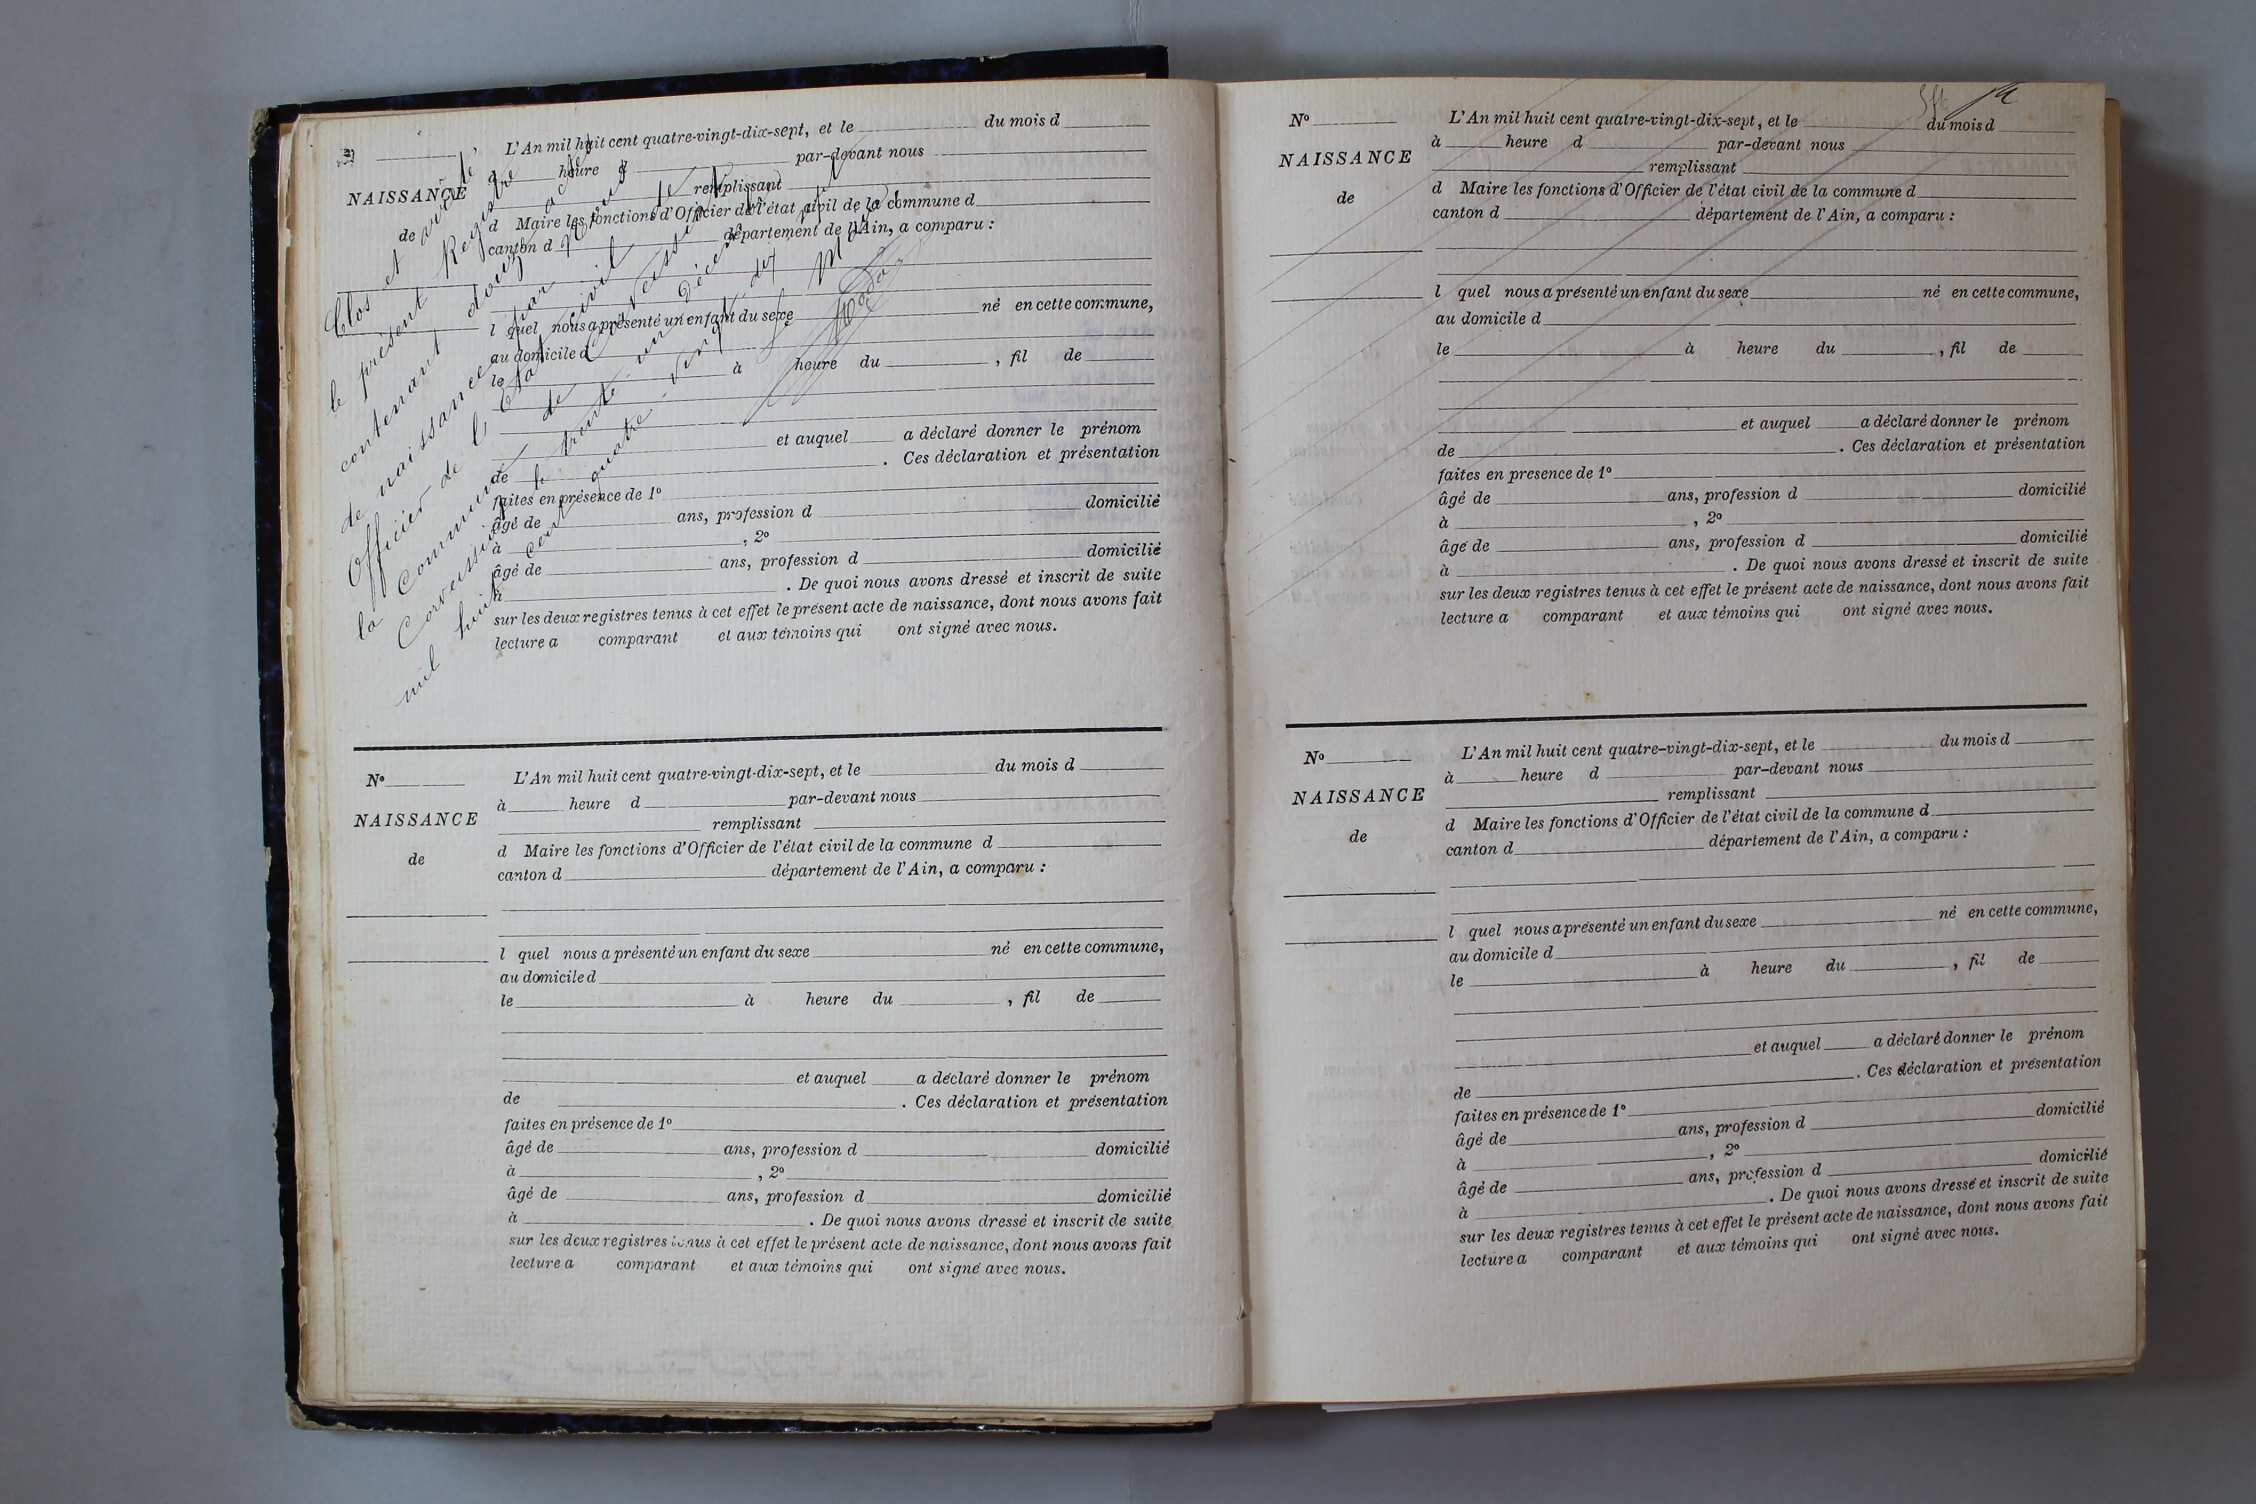 L'An mil huit cent quatre-vingt-dix-sept, et le du mois d
NAISSANCE
à heure d par-devant nous
remplissant
de
d Maire les fonctions d'Officier de l'état civil de la commune d
canton d département de l'Ain, a comparu :
l quel nous a présenté un enfant du sexe né en cette commune,
au domicile d
le à heure du , fil de
et auquel a déclaré donner le prénom
de . Ces déclaration et présentation
faites en présence de 1º
âgé de ans, profession d domicilié
à , 2º
âgé de ans, profession d domicilié
à . De quoi nous avons dressé et inscrit de suite
sur les deux registres tenus à cet effet le présent acte de naissance, dont nous avons fait
lecture a comparant et aux témoins qui ont signé avec nous.
Clos et arrêté
le présent Registre
contenant douze actes
de naissance par nous
Officier de l'Etat civil de
la Commune de
le trente un Décembre
mil huit cent quatre-vingt-dix-sept
Le Maire
Nº
NAISSANCE
de
L'An mil huit cent quatre-vingt-dix-sept, et le du mois d
à heure d par-devant nous
remplissant
d Maire les fonctions d'Officier de l'état civil de la commune d
canton d département de l'Ain, a comparu :
l quel nous a présenté un enfant du sexe né en cette commune,
au domicile d
le à heure du , fil de
et auquel a déclaré donner le prénom
de . Ces déclaration et présentation
faites en présence de 1º
âgé de ans, profession d domicilié
à , 2º
âgé de ans, profession d domicilié
à . De quoi nous avons dressé et inscrit de suite
sur les deux registres tenus à cet effet le présent acte de naissance, dont nous avons fait
lecture a comparant et aux témoins qui ont signé avec nous.
Nº
NAISSANCE
de
L'An mil huit cent quatre-vingt-dix-sept, et le du mois d
à heure d par-devant nous
remplissant
d Maire les fonctions d'Officier de l'état civil de la commune d
canton d département de l'Ain, a comparu :
l quel nous a présenté un enfant du sexe né en cette commune,
au domicile d
le à heure du , fil de
et auquel a déclaré donner le prénom
de . Ces déclaration et présentation
faites en presence de 1º
âgé de ans, profession d domicilié
à , 2º
âgé de ans, profession d domicilié
à . De quoi nous avons dressé et inscrit de suite
sur les deux registres tenus à cet effet le présent acte de naissance, dont nous avons fait
lecture a comparant et aux témoins qui ont signé avec nous.
Nº
NAISSANCE
de
L'An mil huit cent quatre-vingt-dix-sept, et le du mois d
à heure d par-devant nous
remplissant
d Maire les fonctions d'Officier de l'état civil de la commune d
canton d département de l'Ain, a comparu :
l quel nous a présenté un enfant du sexe né en cette commune,
au domicile d
le à heure du , fil de
et auquel a déclaré donner le prénom
de . Ces déclaration et présentation
faites en présence de 1º
âgé de ans, profession d domicilié
à , 2º
âgé de ans, profession d domicilié
à . De quoi nous avons dressé et inscrit de suite
sur les deux registres tenus à cet effet le présent acte de naissance, dont nous avons fait
lecture a comparant et aux témoins qui ont signé avec nous.